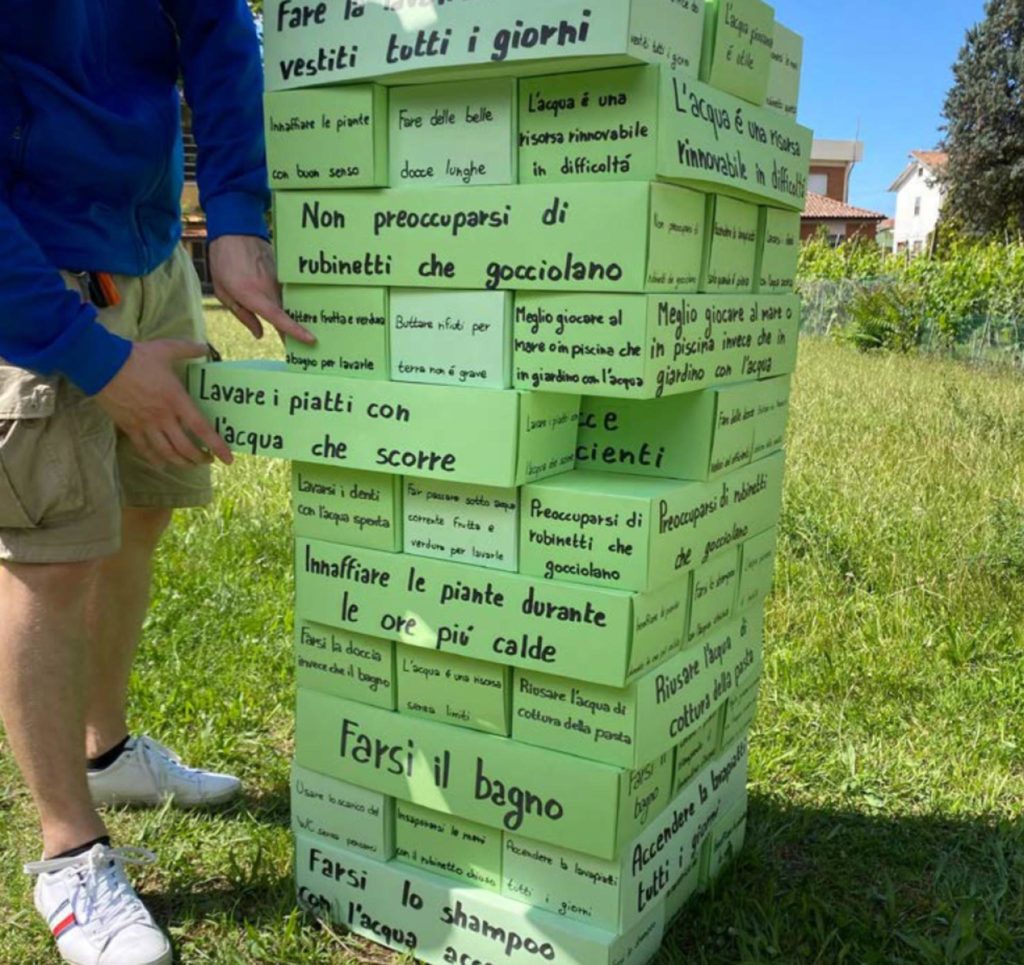 Fare la
vestiti tutti i giorni
vestiti tutti i giorni
L'acqua
é utile
Innaffiare le piante
con buon senso
Fare delle belle
docce lunghe
L'acqua é una
risorsa rinnovabile
in difficoltá
L'acqua é una risorsa
rinnovabile in difficoltá
Non preoccuparsi di
rubinetti che gocciolano
Non preoccuparsi di
rubinetti che gocciolano
Mettere frutta e verdura
a bagno per lavarle
Buttare rifiuti per
terra non é grave
Meglio giocare al
mare o in piscina che
in giardino con l'acqua
Meglio giocare al mare o
in piscina invece che in
giardino con l'acqua
Lavare i piatti con
l'acqua che scorre
Lavare i piatti con
l'acqua che scorre
cienti
Fare delle docce
Lavarsi i denti
con l'acqua spenta
Far passare sotto acqua
corrente frutta e
verdura per lavarle
Preoccuparsi di
rubinetti che
gocciolano
Preoccuparsi di rubinetti
che gocciolano
Innaffiare le piante durante
le ore piú calde
Innaffiare le piante
Farsi lo shampoo
Farsi la doccia
invece che il bagno
L'acqua é una risorsa
senza limiti
Riusare l'acqua di
cottura della pasta
Riusare l'acqua di
cottura della pasta
Farsi il bagno
Farsi il
bagno
Usare lo scarico del
WC senza pensarci
Insaponarsi le mani
con il rubinetto chiuso
Accendere la lavapiatti
tutti i giorni
Accendere la lavapiatti
tutti i giorni
Farsi lo shampoo
con l'acqua